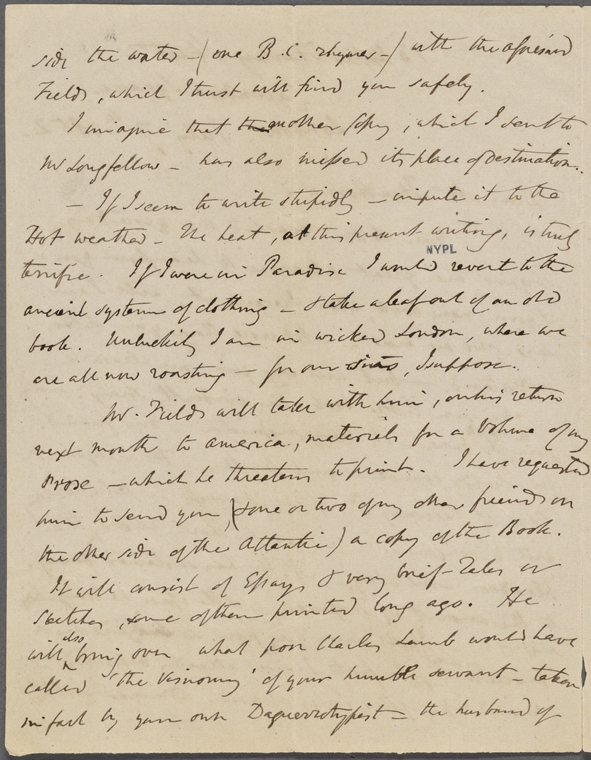 side the water - (one B.C. rhymer -) with the aforesaid
Fields, which I trust will find you safely.
I imagine that the another Copy, which I sent to
Mr Longfellow - has also missed its place of destination.
- If I seem to write stupidly - impute it to the
Hot weather - The heat, at this present writing, is truly
NYPL
terrific. If I were in Paradise I would revert to the
ancient system of clothing - & take a leaf out of an old
book. Unluckily I am in wicked London, where we
are all now roasting - for our sins, I suppose.
Mr. Fields will take with him, on his return
next month to America, materials for a Volume of my
Prose - which he threatens to print. I have requested
him to send you (& one or two of my other friends on
the other side of the Atlantic) a copy of the Book.
It will consist of Essays & very brief Tales or
Sketches, some of them printed long ago. He
will also bring over what poor Charles Lamb would have
called 'the Visnomy' of your humble servant - taken
in fact by your own Daguerrotypist - the husband of